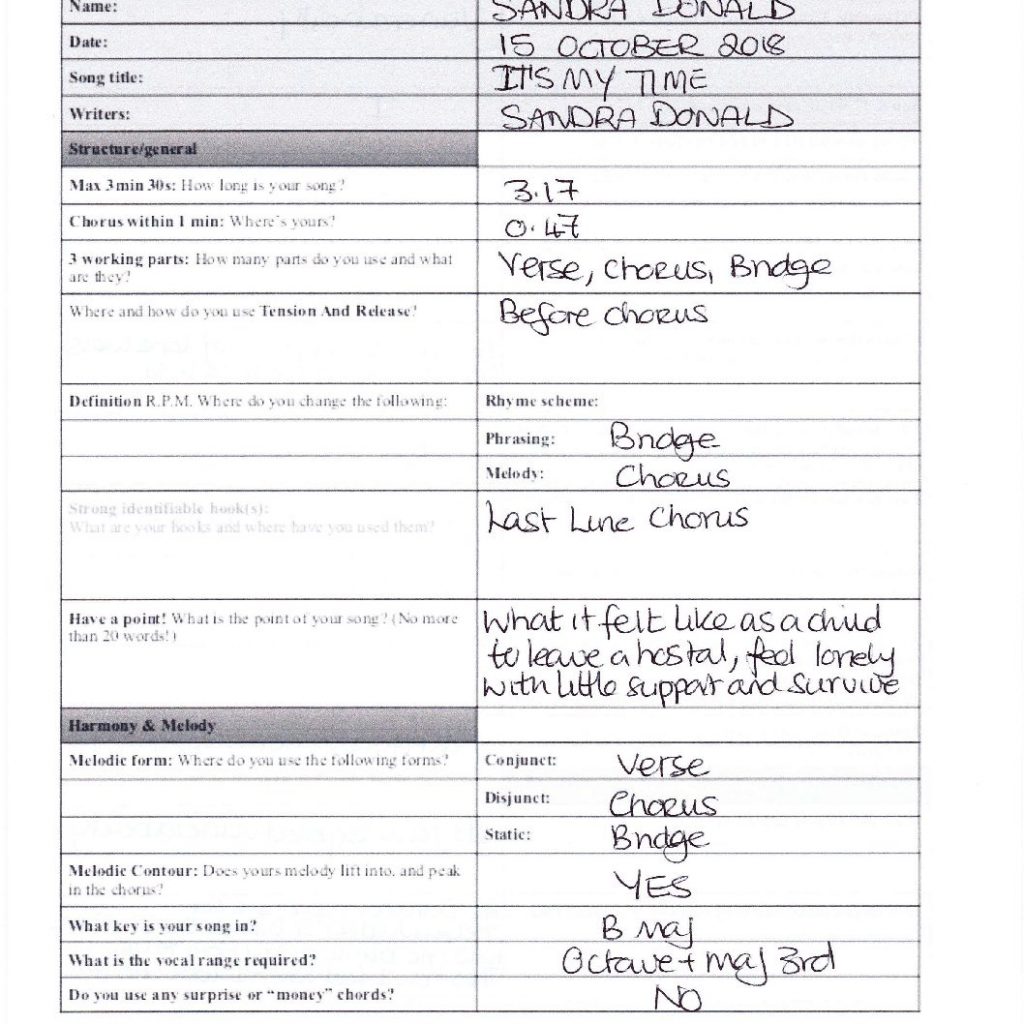 Name: SANDRA DONALD
Date: 15 OCTOBER 2018
Song title: IT'S MY TIME
Writers: SANDRA DONALD
Structure/general
Max 3min 30s: How long is your song? 3.17
Chorus within 1 min: Where's yours? 0.47
3 working parts: How many parts do you use and what
are they?
Verse, Chorus, Bridge
Where and how do you use Tension And Release? Before chorus
Definition R.P.M. Where do you change the following: Rhyme scheme:
Phrasing: Bridge
Melody: Chorus
Strong identifiable hook(s):
What are your hooks and where have you used them?
Last Line Chorus
Have a point! What is the point of your song? (No more
than 20 words!)
What it felt like as a child
to leave a hostal, feel lonely
with little support and survive
Harmony & Melody
Melodic form: Where do you use the following forms? Conjunct: Verse
Disjunct: Chorus
Static: Bridge
Melodic Contour: Does yours melody lift into, and peak
in the chorus?
YES
What key is your song in? B maj
What is the vocal range required? Octave + maj 3rd
Do you use any surprise or “money” chords? NO